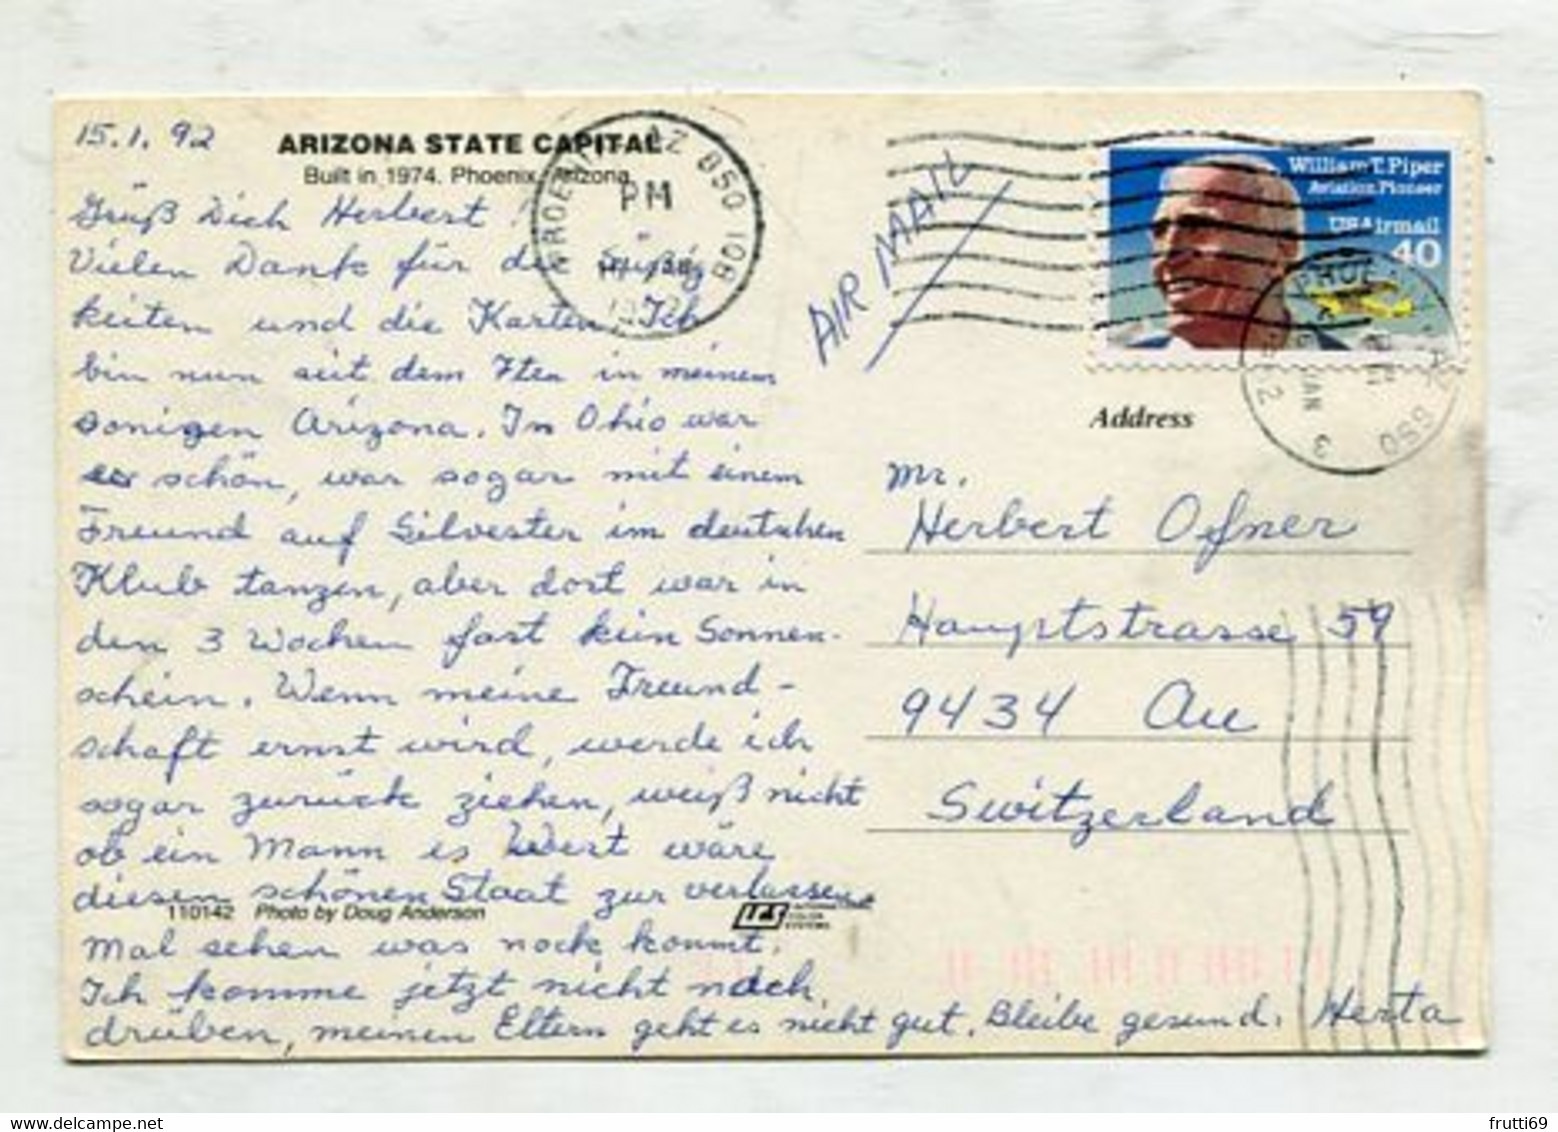 15.1.92
ARIZONA STATE CAPITAL
Built in 1974. Phoenix, Arizona
Grüß Dich Herbert
Vielen Dank für die Süßig
keiten und die Karten, Ich
bin nun seit dem 7ten in meinem
sonigen Arizona. In Ohio war
es schön, war sogar mit einem
Freund auf Silvester im deutschen
Klub tanzen, aber dort war in
den 3 Wochen fast kein Sonnen-
schein. Wenn meine Freund-
schaft ernst wird, werde ich
sogar zurück ziehen, weiß nicht
ob ein Mann es Wert wäre
diesen schönen Staat zur verlassen.
110142 Photo by Doug Anderson
ICS
Mal sehen was noch kommt.
Ich komme jetzt nicht nach
drüben, meinen Eltern geht es nicht gut. Bleibe gesund. Herta
PHOENIX AZ 850 108
PM
AIR MAIL
William T. Piper
Aviation Pioneer
USAirmail
40
Address
Mr.
Herbert Ofner
Hauptstrasse 59
9434 Au
Switzerland
frutti69